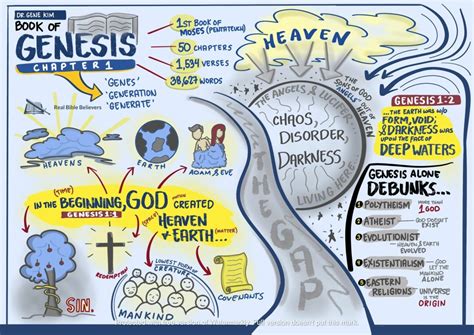 DR. GENE KIM
BOOK OF
GENESIS
CHAPTER 1
'GENES'
'GENERATION
'GENERATE'
Real Bible Believers
1ST BOOK OF
MOSES (PENTATEUCH)
50 CHAPTERS
1,534 VERSES
38,627 WORDS
HEAVENS
EARTH
ADAM & EVE
(TIME)
IN THE BEGINNING, GOD CREATED
GENESIS 1:1
(SPACE)
HEAVEN
& EARTH...
(MATTER)
SIN.
REDEMPTION
LOWEST FORM OF
CREATURE
MANKIND
COVENANTS
HEAVEN
THE SONS OF GOD
"ANGELS"
THE ANGELS &
CHAOS,
DISORDER,
DARKNESS
LIVING HERE
THE GAP
GENESIS 1:2
...THE EARTH WAS W/O
FORM, VOID;
& DARKNESS WAS
UPON THE FACE OF
DEEP WATERS
GENESIS ALONE
DEBUNKS...
1 POLYTHEISM
MORE THAN
1 GOD
2 ATHEIST
GOD DOESN'T
EXIST
3 EVOLUTIONIST
HEAVEN & EARTH
EVOLVED
4 EXISTENTIALISM
GOD
LET THE
MANKIND
ALONE
5 EASTERN
RELIGIONS
UNIVERSE
IS THE
ORIGIN